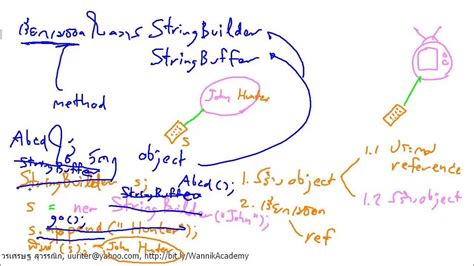 เรียกเมธอดในคลาส StringBuilder
StringBuffer
method
John Hunter
s
Abcd g;
ของ object
StringBuffer
StringBuilder s;
Abcd();
s = new StringBuilder("John");
go();
s.append(" Hunter");
John Hunter
1. สร้าง object
1.1 ประกาศ reference
1.2 สร้าง object
2. เรียกเมธอด
ref
วรเศรษฐ สุวรรณิก, uuriter@yahoo.com, http://bit.ly/WannikAcademy